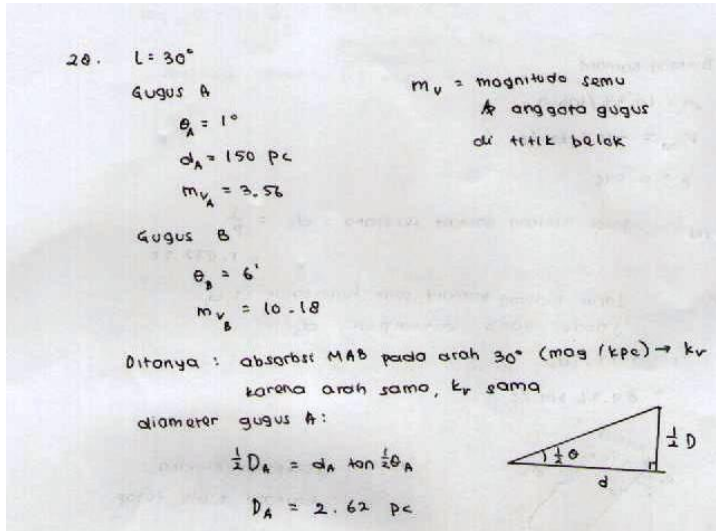 28. L = 30°
Gugus A
θ_A = 1°
d_A = 150 pc
m_{v_A} = 3.56
m_v = magnitudo semu
anggota gugus
di titik belok
Gugus B
θ_B = 6'
m_{v_B} = 10.18
Ditanya : absorbsi MAB pada arah 30° (mag/kpc) → k_v
karena arah sama, k_v sama
diameter gugus A :
½ D_A = d_A tan ½ θ_A
D_A = 2.62 pc
½ θ
½ D
d